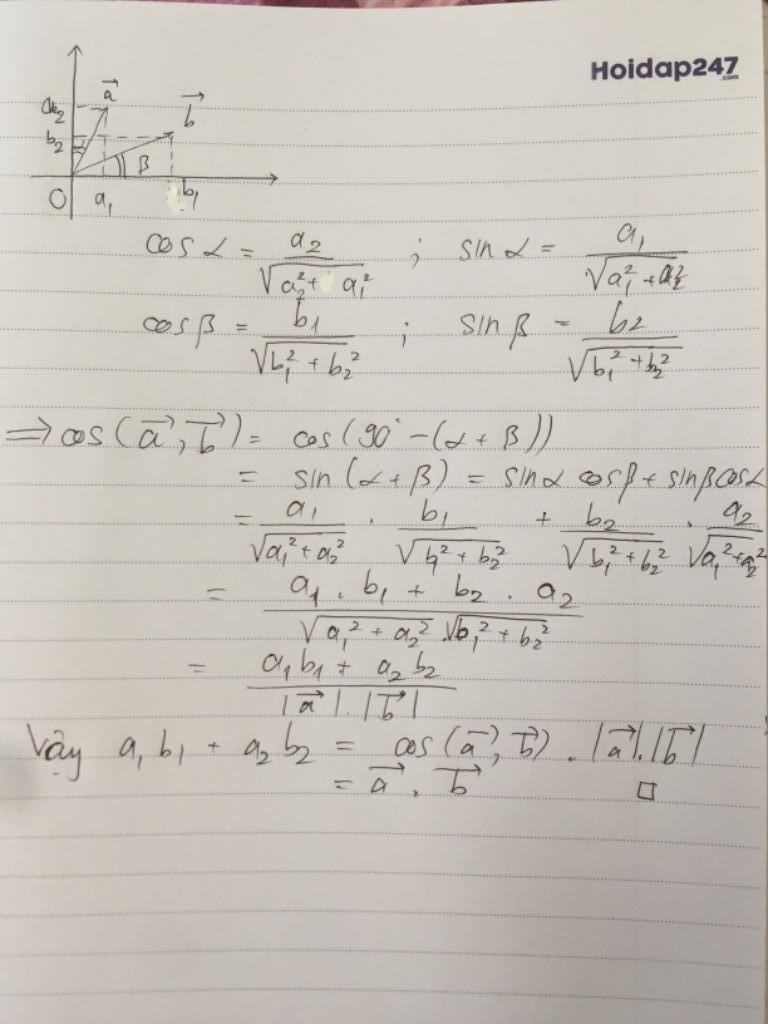 Hoidap247
.com
a₂ a⃗
b⃗
b₂
β
O a₁ b₁
cos α = a₂ / √(a₂² + a₁²) ; sin α = a₁ / √(a₁² + a₂²)
cos β = b₁ / √(b₁² + b₂²) ; sin β = b₂ / √(b₁² + b₂²)
⇒ cos(a⃗, b⃗) = cos(90° - (α + β))
= sin(α + β) = sin α cos β + sin β cos α
= a₁ / √(a₁² + a₂²) . b₁ / √(b₁² + b₂²) + b₂ / √(b₁² + b₂²) . a₂ / √(a₁² + a₂²)
= (a₁ . b₁ + b₂ . a₂) / (√(a₁² + a₂²) . √(b₁² + b₂²))
= (a₁b₁ + a₂b₂) / (|a⃗| . |b⃗|)
Vậy a₁b₁ + a₂b₂ = cos(a⃗, b⃗) . |a⃗| . |b⃗|
= a⃗ . b⃗ □